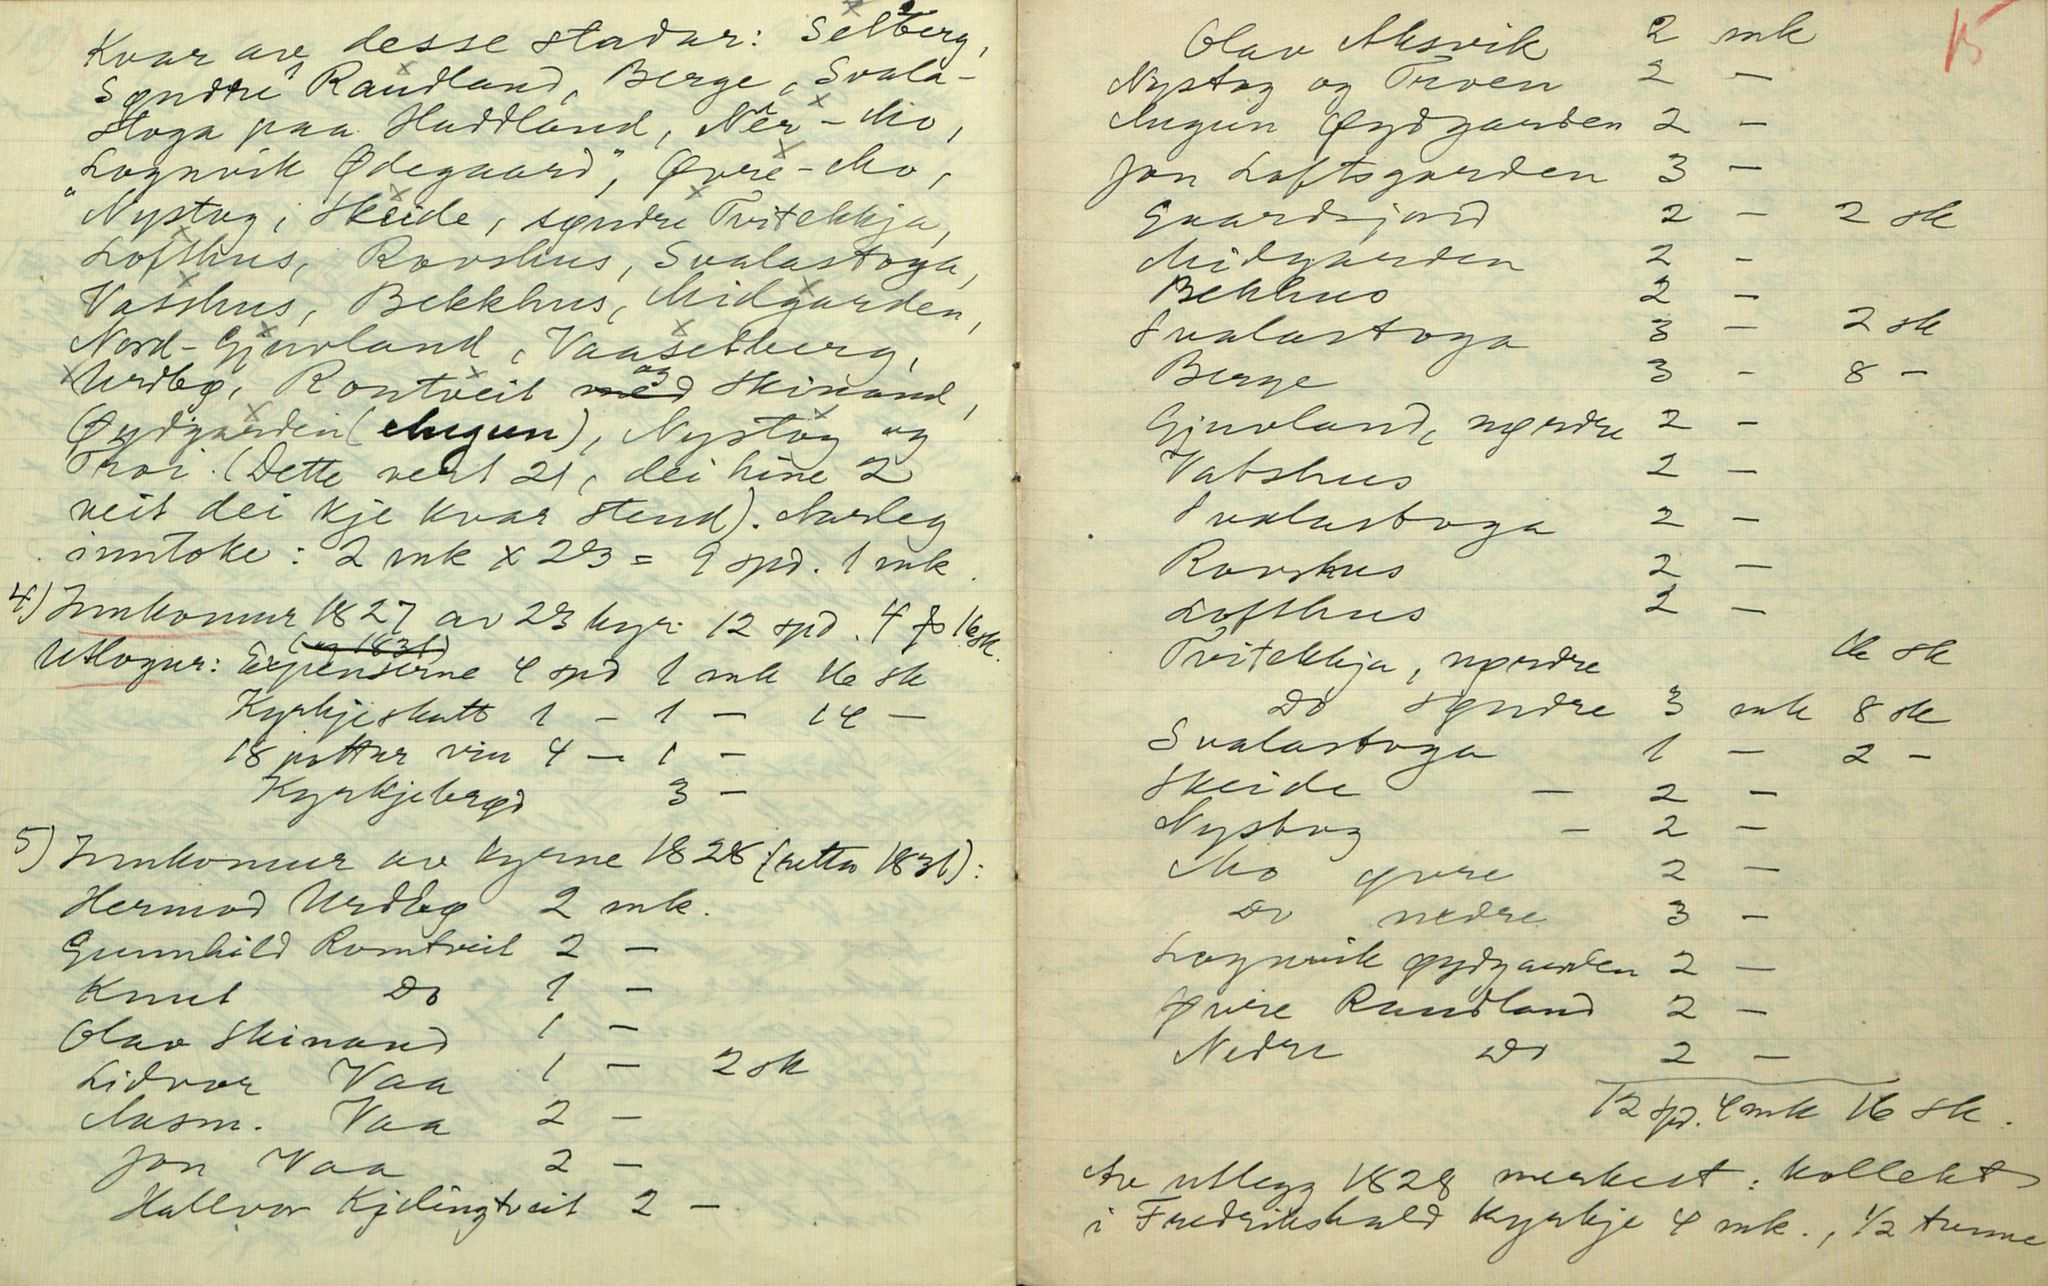 Kvar av desse stadar: Selberg,
Søndre Raudland, Berge, Svala-
stoga paa Haddland, Ner-Mo,
Lognvik Ødegaard", Øvre-Mo,
"Nystog, Skeide, søndre Tvitekkja,
Lofthus, Rovshus, Svalastoga,
Vasshus, Bekkhus, Midgarden,
Nord-Gjuvland, Vaaselberg,
Urdbø, Romtveit med og Skinand,
Øydgarden (Augun), Nystog og
Troi. (Dette vert 21, dei hine 2
veit dei kje kvar stend). Aarleg
inntoke: 2 mk x 23 = 9 spd. 1 mk.
4) Innkomur 1827 av 23 kyr: 12 spd. 4 16 sk.
(og 1831)
Utlogur: Expenserne 4 spd 1 mk 16 sk
Kyrkjeskatt 1 – 1 – 14 –
18 pottur vin 4 – 1 –
Kyrkjebrød 3 –
5) Innkomur av kyrne 1828 (retta 1831):
Hermod Urdbø 2 mk.
Gunnhild Romtveit 2 –
Knut Do 1 –
Olav Skinand 1 –
Lidvor Vaa 1 – 2 sk
Aasm. Vaa 2 –
Jon Vaa 2 –
Hallvor Kjelingtveit 2 –
15
Olav Aksvik 2 mk
Nystog og Troen 2 –
Augun Øydgarden 2 –
Jon Loftsgarden 3 –
Gaardsjord 2 – 2 sk
Midgarden 2 –
Bekhus 2 –
Svalastoga 3 – 2 sk
Berge 3 – 8 –
Gjuvland, nørdre 2 –
Vatshus 2 –
Svalastoga 2 –
Rovshus 2 –
Lofthus 2 –
Tvitekkja, nørdre 16 sk
Do søndre 3 mk 8 sk
Svalastoga 1 – 2 –
Skeide – 2 –
Nystog – 2 –
Mo øvre 2 –
Do nedre 3 –
Lognvik øydgarden 2 –
Øvre Raudland 2 –
Nedre Do 2 –
12 spd. 4 mk 16 sk.
Av utlegg 1828 merkest: kollekt
i Fredrikshald Kyrkje 4 mk., 1/2 tunne